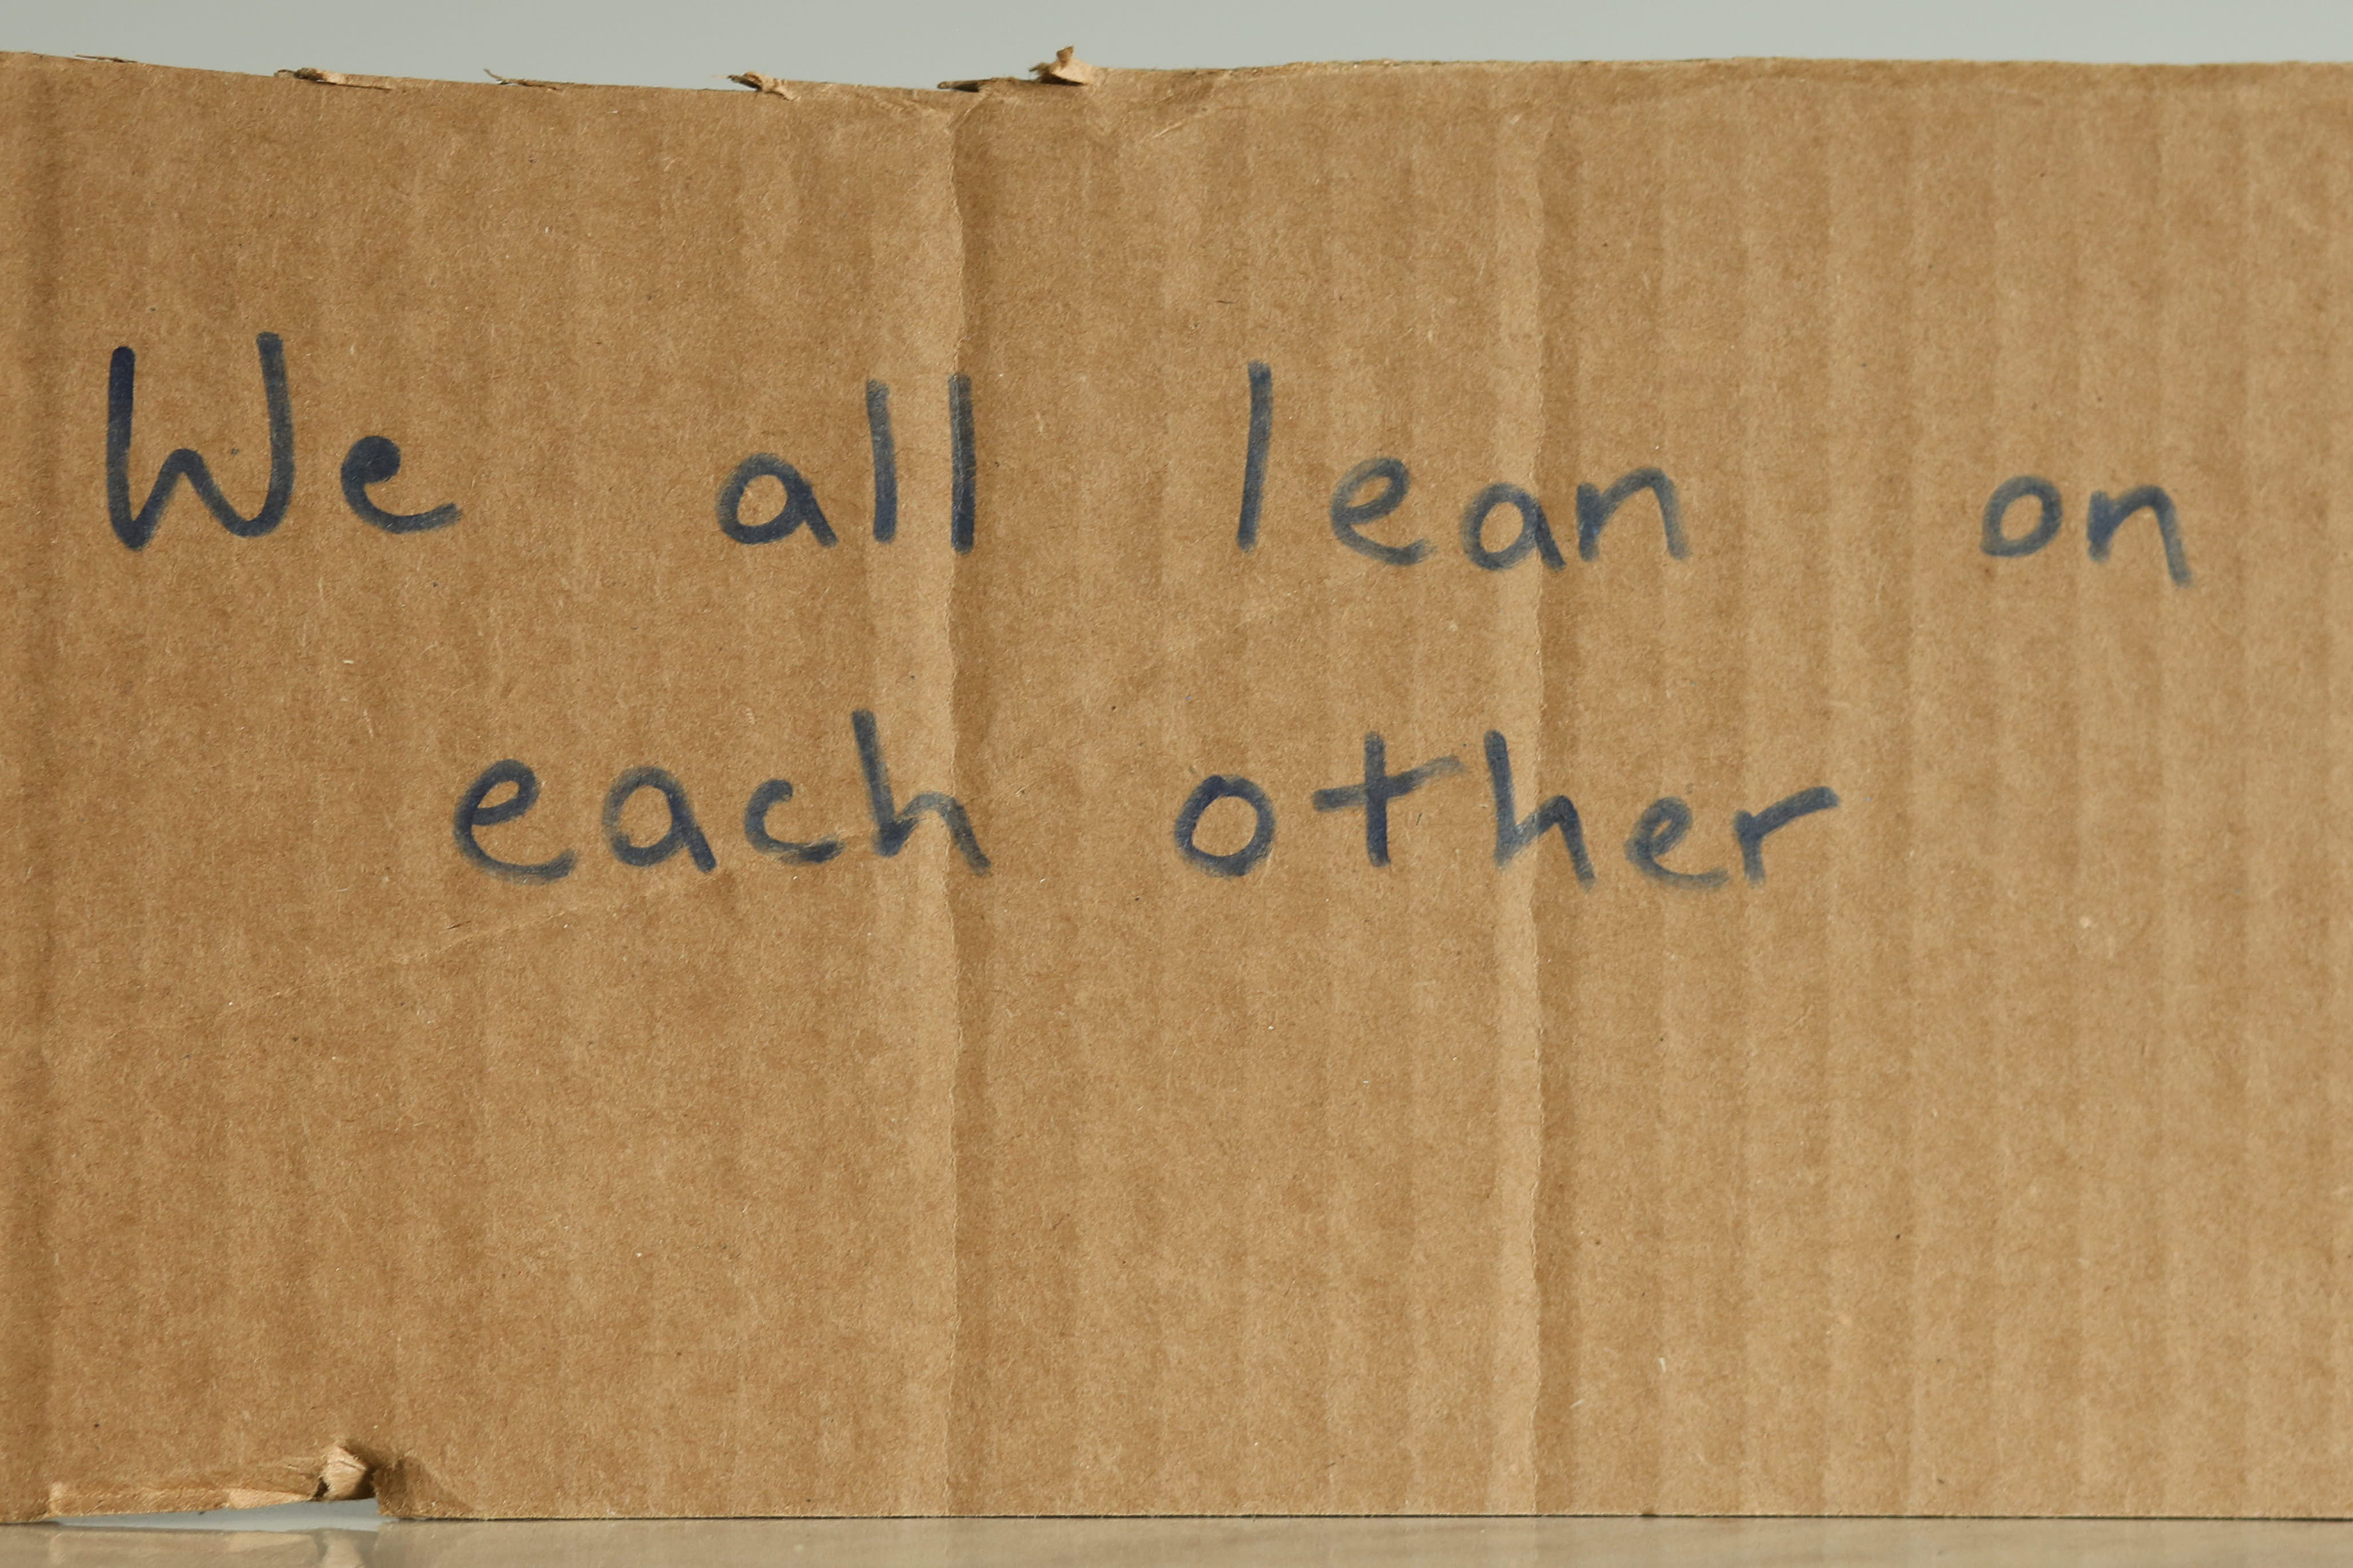 We all lean on
each other